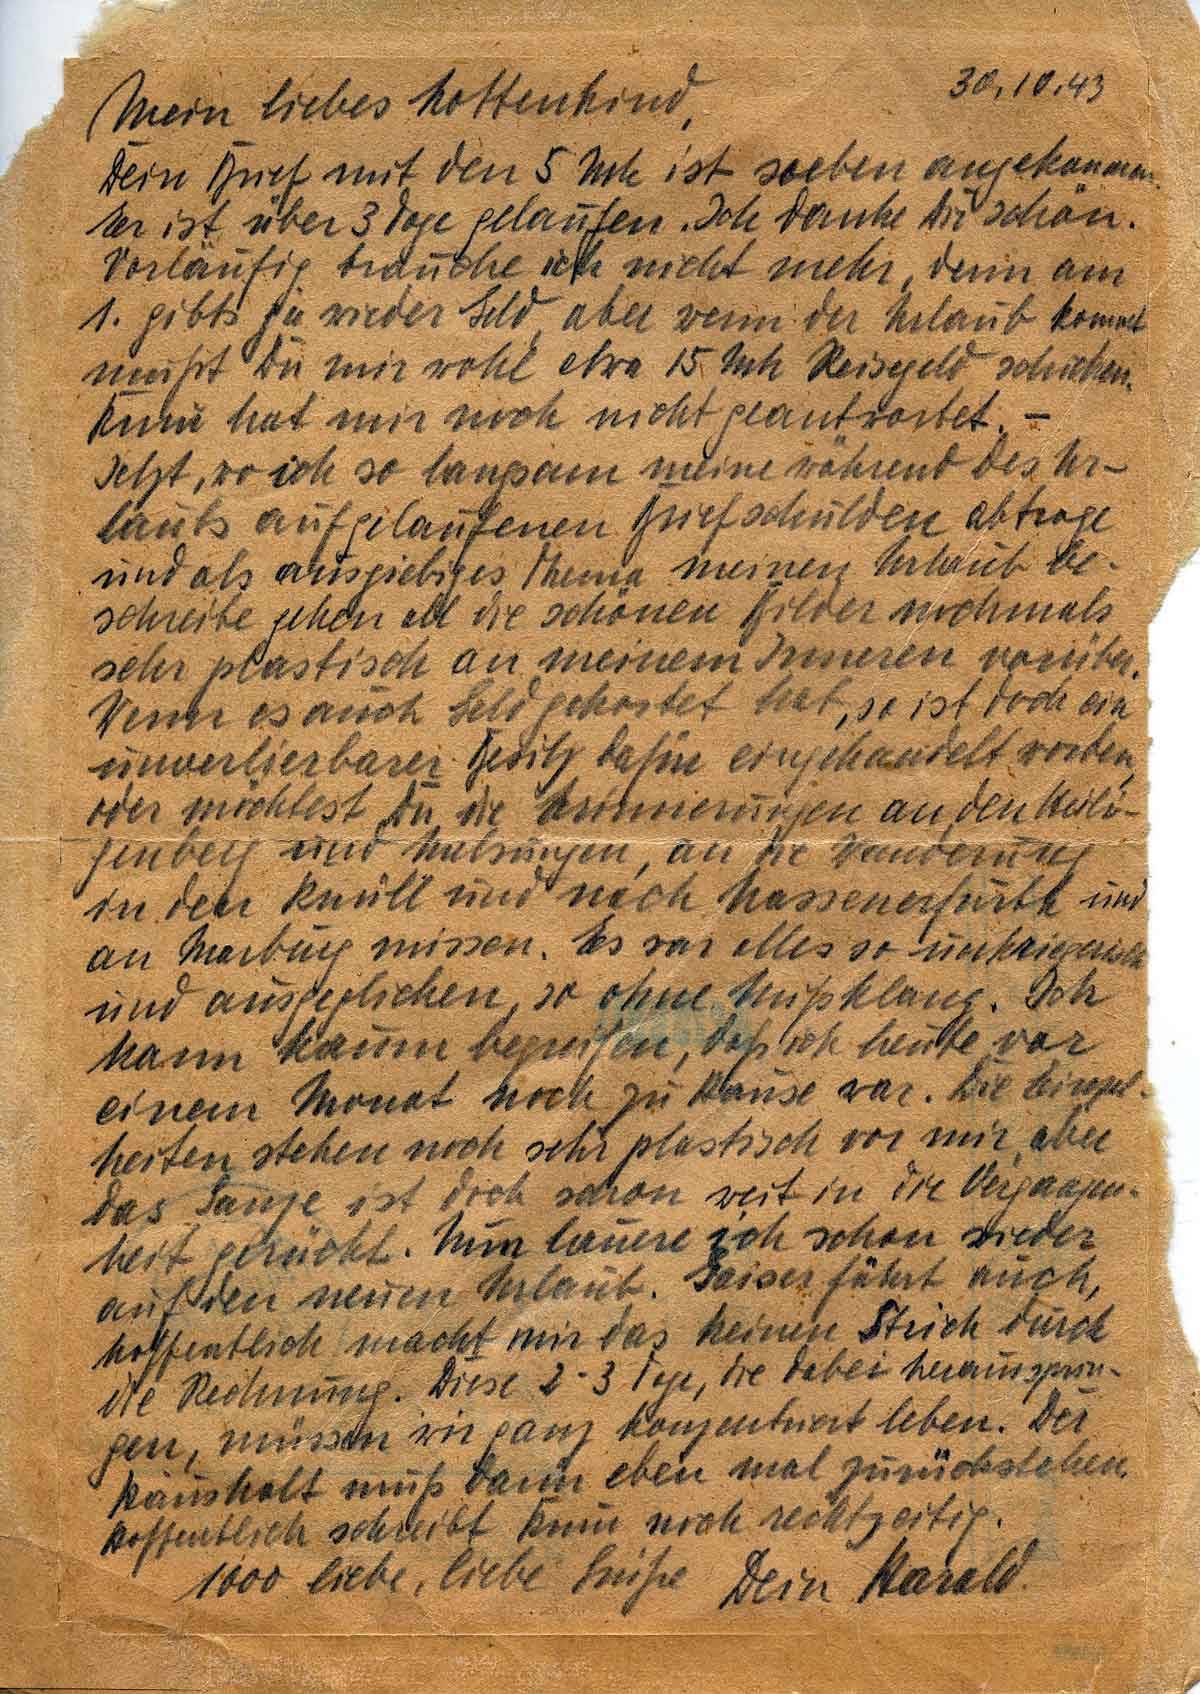 30.10.43
Mein liebes Kottenkind,
Dein Brief mit den 5 Mk ist soeben angekommen.
Er ist über 3 Tage gelaufen. Ich danke Dir schön.
Vorläufig brauche ich nicht mehr, denn am
1. gibts ja wieder Geld, aber wenn der Urlaub kommt
mußt Du mir wohl etwa 15 Mk Reisegeld schicken.
hat mir noch nicht geantwortet. –
Jetzt, wo ich so langsam meine während des Ur-
laubs aufgelaufenen Briefschulden abtrage
und als ausgiebiges Thema meinen Urlaub be-
schreibe gehen all die schönen Bilder nochmals
sehr plastisch an meinem Inneren vorüber.
Wenn es auch Geld gekostet hat, so ist doch ein
unverlierbarer Besitz dafür eingehandelt worden,
oder möchtest Du die Erinnerungen an den Heili-
genberg und Melsungen, an die Wanderung
in den Knüll und nach Nassenerfurth und
an Marburg missen. Es war alles so unkriegerisch
und ausgeglichen, so ohne Mißklang. Ich
kann kaum begreifen, daß ich heute vor
einem Monat noch zu Hause war. Die Einzel-
heiten stehen noch sehr plastisch vor mir, aber
das Ganze ist doch schon weit in die Vergangen-
heit gerückt. Nun lauere ich schon wieder
auf den neuen Urlaub. Gaiser fährt auch,
hoffentlich macht mir das keinen Strich durch
die Rechnung. Diese 2-3 Tage, die dabei heraussprin-
gen, müssen wir ganz konzentriert leben. Der
Haushalt muß dann eben mal zurückstehen.
Hoffentlich schreibt noch rechtzeitig.
1000 liebe, liebe Grüße Dein Harald.